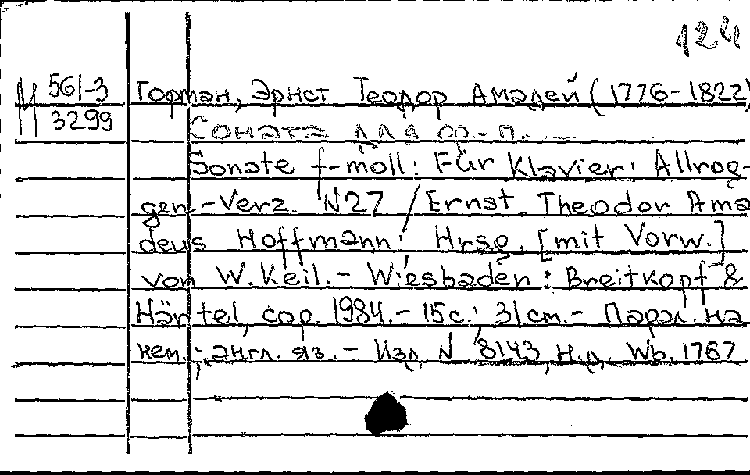 124
М 561-3
3299
Гофман, Эрнст Теодор Амадей (1776-1822)
Соната для ф.-п.
Sonate f-moll: Für Klavier: Allroe-
gen.-Verz. N27 / Ernst Theodor Ama
deus Hoffmann; Hrsg. [mit Vorw.]
von W. Keil. - Wiesbaden: Breitkopf &
Härtel, cop. 1984. - 15 с.; 31 cm. - Парал. на
нем., англ. яз. - Изд. N 8143, Н.д. Wb. 1767